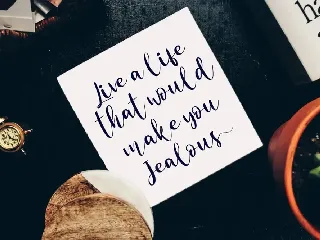 Live a life
that would
make you
Jealous
ha